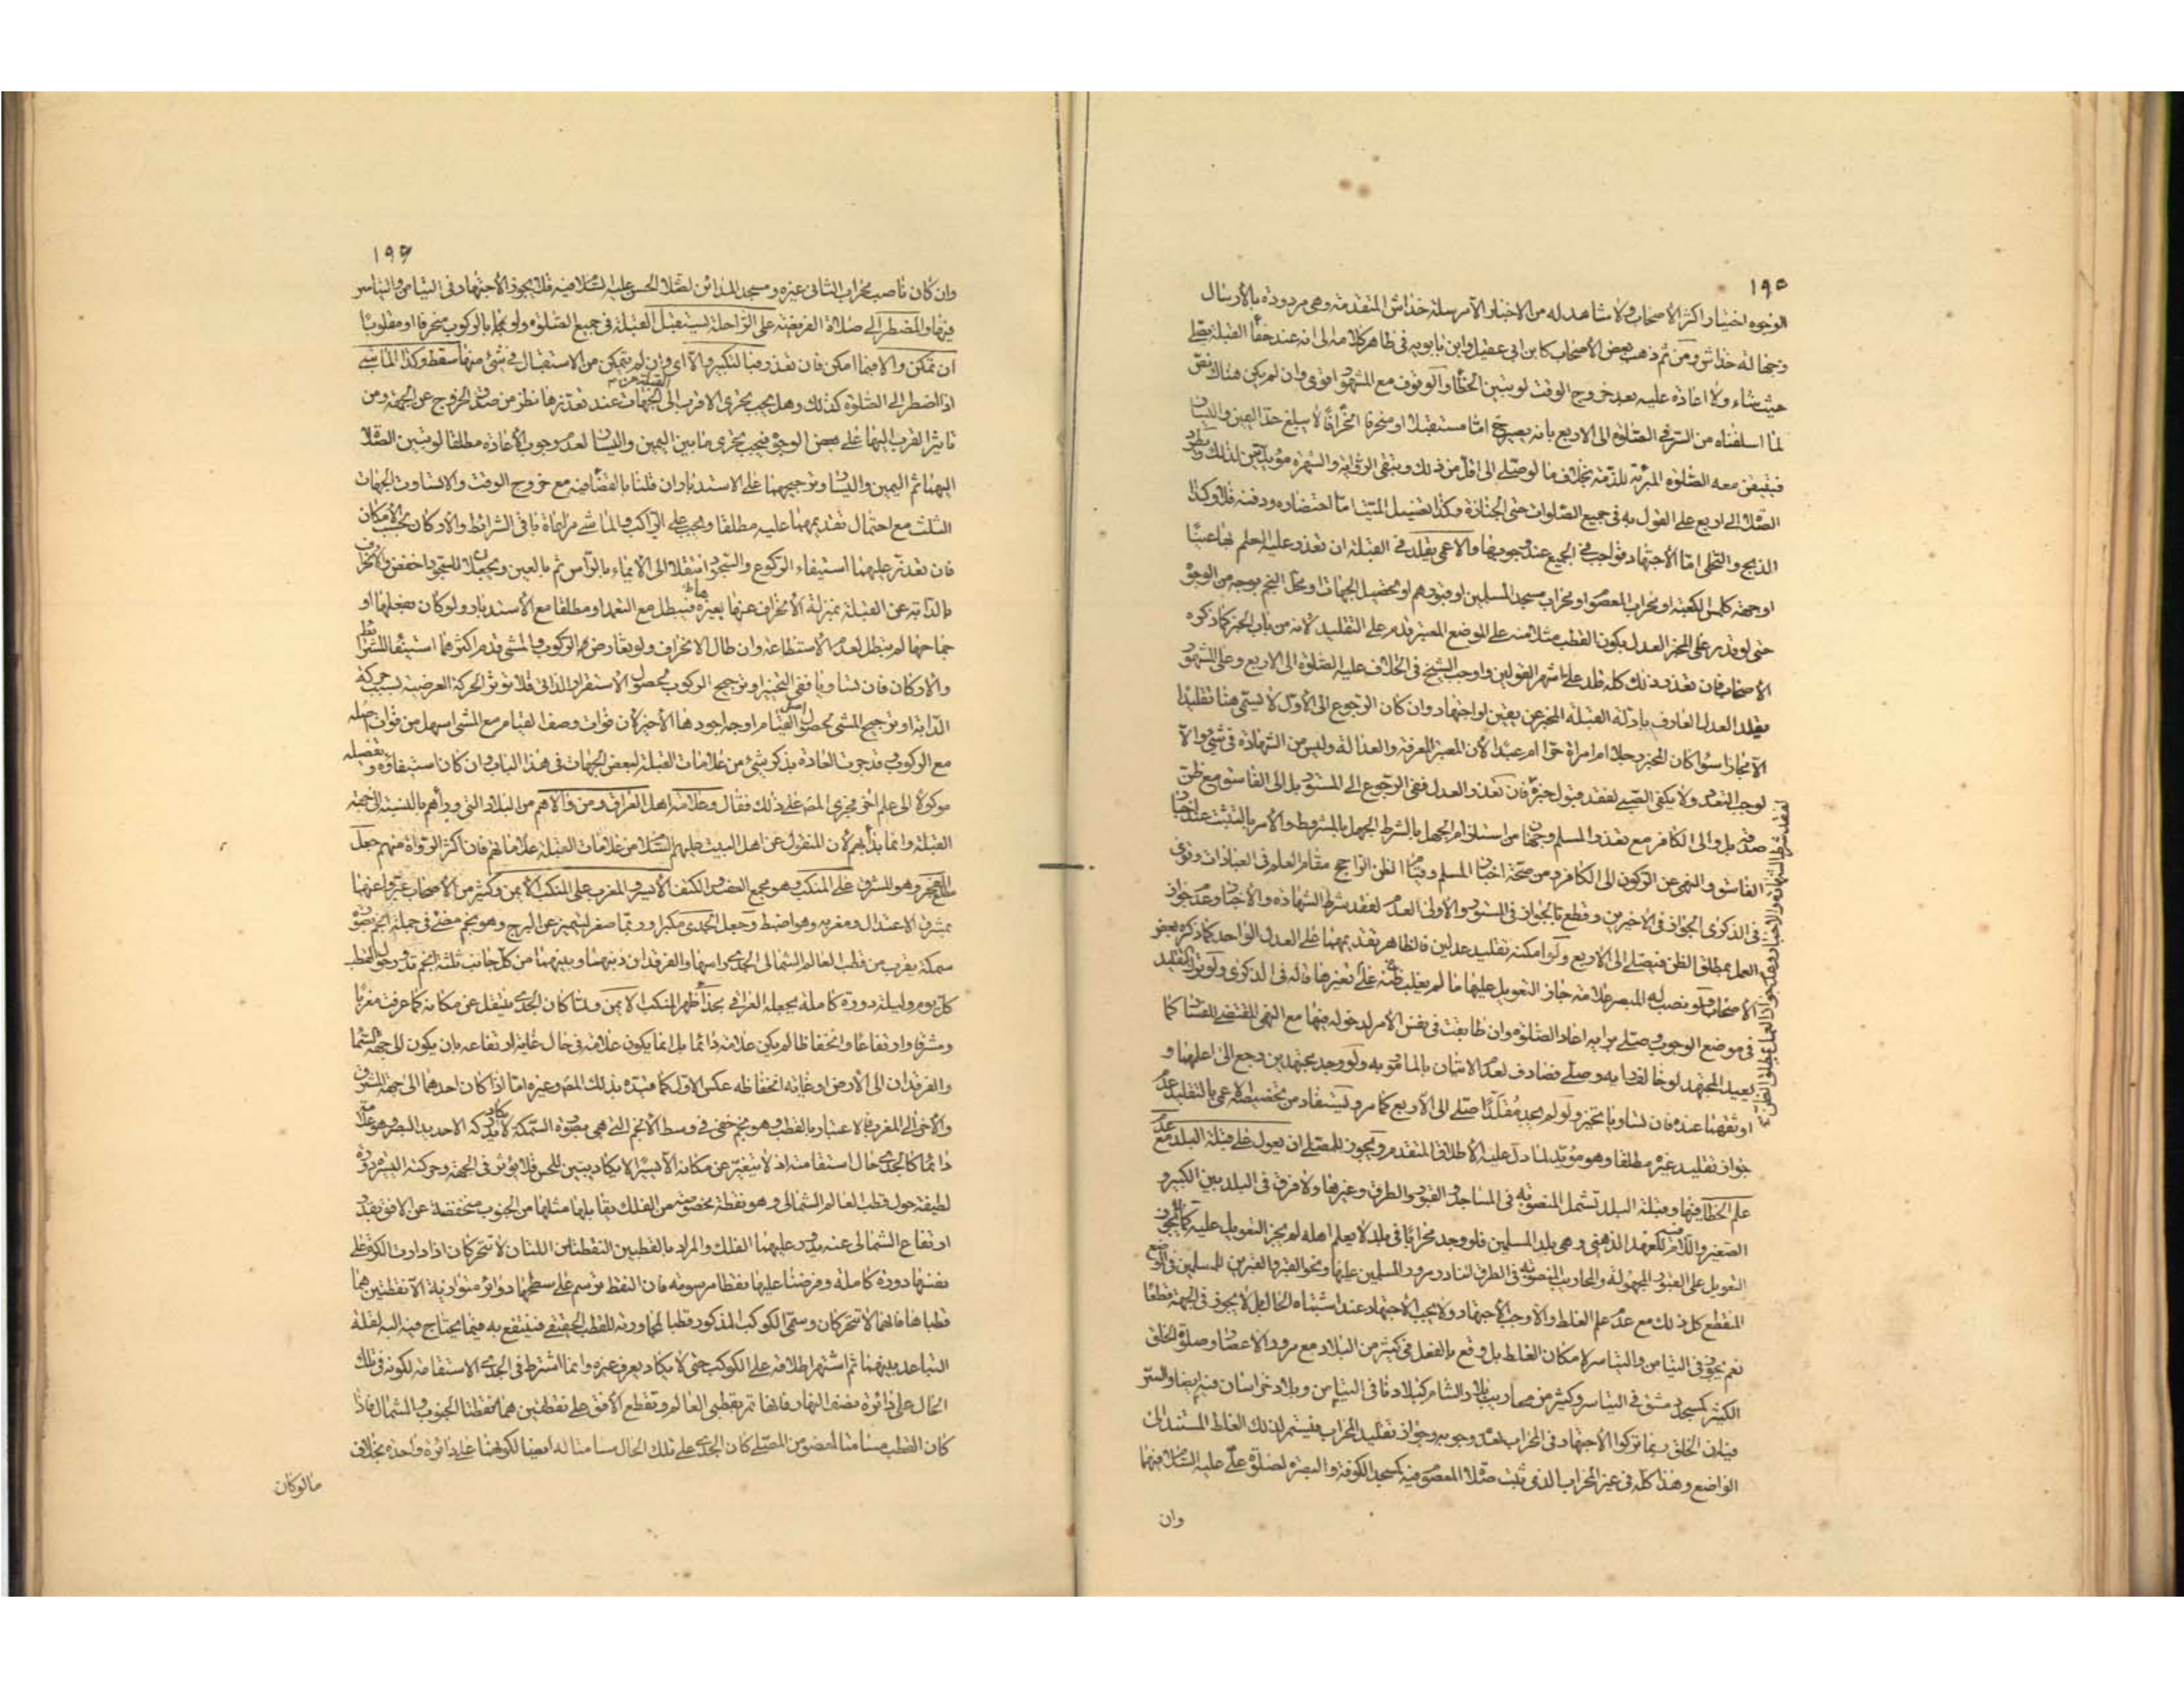 ١٩٥
الوجوه اختيار اكثر الاصحاب ولا شاهد له من الاخبار الا مرسلة خداش المتقدمة وهى مردودة بالارسال
وجهالة خداش ومن ثم ذهب بعض الاصحاب كابن ابى عقيل وابن بابويه فى ظاهر كلامه الى انه عند خفاء القبلة يصلى
حيث شاء ولا اعادة عليه بعد خروج الوقت لو تبين الخطأ والوقوف مع المشهور اقوى وان لم يكن هناك نص
لما اسلفناه من السر فى الصلوة الى الاربع بانه يصير ح اما مستقبلا او منحرفا انحرافا لا يبلغ حد اليمين واليسار
فيتيقن معه الصلوة المبرئة للذمة بخلاف ما لو صلى الى اقل من ذلك وتبقى الرواية والشهرة مؤيدتين لذلك
الصلاة الى اربع على القول به فى جميع الصلوات حتى الجنازة وكذا تغسيل الميت اما احتضاره ودفنه فلا وكذا
الذبح والتخلى اما الاجتهاد فواجب فى الجميع عند وجوبها والاعمى يقلد فى القبلة ان تعذر عليه العلم بها عينا
او جهة كلمس الكعبة او محراب المعصوم او محراب مسجد المسلمين او قبورهم او تحصيل الجهات او محل النجم بوجه من الوجوه
حتى لو قدر على المخبر العدل بكون القطب مثلا منه على الموضع المعتبر قدم على التقليد لانه من باب الخبر كما ذكره
الاصحاب فان تعذر ذلك كله قلد على اشهر القولين واوجب الشيخ فى الخلاف عليه الصلوة الى الاربع وعلى المشهور
يقلد العدل العارف بادلة القبلة المخبر عن يقين او اجتهاد وان كان الرجوع الى الاول لا يسمى هنا تقليدا
الا مجازا سواء كان المخبر رجلا ام امراة حرا ام عبدا لان المعتبر المعرفة والعدالة وليس من الشهادة فى شئ والا
لوجب التعدد ولا يكفى الصبى لفقد قبول خبره فان تعذر العدل ففى الرجوع الى المستور بل الى الفاسق مع ظن
صدقه بل والى الكافر مع تعذر المسلم وجهان من استلزام الجهل بالشرط الجهل بالمشروط والامر بالتثبت عند اخبار
الفاسق والنهى عن الركون الى الكافر ومن صحة اخبار المسلم وقيام الظن الراجح مقام العلم فى العبادات وقوى
فى الذكرى الجواز فى الاخيرين وقطع بالجواز فى المستور والاولى العدم لفقد شرط الشهادة والاخبار وعدم جواز
العمل بمطلق الظن فيصلى الى الاربع ولو امكنه تقليد عدلين فالظاهر تقديمهما على العدل الواحد كما ذكره بعض
الاصحاب ولو نصب له المبصر علامة جاز التعويل عليها ما لم يغلب ظنه على تغيرها قاله فى الذكرى ولو ترك التقليد
فى موضع الوجوب وصلى برايه اعاد الصلوة وان طابقت فى نفس الامر لدخوله فيها مع النهى المقتضى للفساد كما
يعيد المجتهد لو خالف رايه وصلى فصادف لعدم الاتيان بالمامور به ولو وجد مجتهدين رجع الى اعلمهما و
اوثقهما عنده فان تساويا تخير ولو لم يجد مقلدا صلى الى الاربع كما مر ويستفاد من تخصيصه الاعمى بالتقليد عدم
جواز تقليد غيره مطلقا وهو مؤيد لما دل عليه الاطلاق المتقدم ويجوز للمصلى ان يعول على قبلة البلد مع عدم
علم الخطأ فيها وقبلة البلد تشمل المنصوبة فى المساجد والقبور والطرق وغيرها ولا فرق فى البلد بين الكبير و
الصغير واللام فيه للعهد الذهنى وهى بلد المسلمين فلو وجد محرابا فى بلد لا يعلم اهله لم يجز التعويل عليه كما لا يجوز
التعويل على القبور المجهولة والمحاريب المنصوبة فى الطرق النادر مرور المسلمين عليها ونحو القبر والقبرين للمسلمين فى الموضع
المنقطع كل ذلك مع عدم علم الغلط والا وجب الاجتهاد ولا يجب الاجتهاد عند اشتباه الحال بل لا يجوز فى الجهة قطعا
نعم يجوز فى التيامن والتياسر لامكان الغلط بل وقع بالفعل فى كثير من البلاد مع مرور الاعصار وصلوة الخلق
الكثير كمسجد دمشق فى التياسر وكثير من محاريب بلاد الشام كبلادنا فى التيامن وبلاد خراسان فيهما ايضا والسر
فيه ان الخلق ربما تركوا الاجتهاد فى المحراب لعدم وجوبه وجواز تقليد المحراب فيستمر لذلك الغلط المستند الى
الواضع وهذا كله فى غير المحراب الذى ثبت صلاة المعصوم فيه كمسجد الكوفة والبصرة لصلوة على عليه السلام فيهما
وان
١٩٦
وان كان ناصب محراب الثانى غيره ومسجد المدائن لصلاة الحسن عليه السلام فيه فلا يجوز الاجتهاد فى التيامن والتياسر
فيها والمضطر الى صلاة الفريضة على الراحلة يستقبل القبلة فى جميع الصلوة ولو بالركوب منحرفا او مقلوبا
ان تمكن والا فبما امكن فان تعذر فبالتكبير والا اى وان لم يتمكن من الاستقبال فى شئ منها سقط وكذا الماشى
اذا اضطر الى الصلوة كذلك وهل يجب تحرى الاقرب الى القبلة من الجهات عند تعذرها نظر من صدق الخروج عن الجهة ومن
تاثير القرب اليها على بعض الوجوه فيجب تحرى ما بين اليمين واليسار لعدم وجوب الاعادة مطلقا لو تبين الصلاة
اليهما ثم اليمين واليسار وترجيحهما على الاستدبار ان قلنا بالقضاء فيه مع خروج الوقت والا تساوت الجهات
الثلث مع احتمال تقديمهما عليه مطلقا ويجب على الراكب والماشى مراعاة باقى الشرائط والاركان بحسب الامكان
فان تعذر عليهما استيفاء الركوع والسجود انتقلا الى الايماء بالراس ثم بالعين ويجعلان السجود اخفض والانحراف
بالدابة عن القبلة بمنزلة الانحراف عنها بغيرها فتبطل مع التعمد او مطلقا مع الاستدبار ولو كان بفعلها او
جماحها لم تبطل لعدم الاستطاعة وان طال الانحراف ولو تعارض الركوب والمشى قدم اكثرهما استيفاء للشرائط
والاركان فان تساويا ففى التخير او ترجيح الركوب لحصول الاستقرار الذاتى فلا تؤثر الحركة العرضية بسبب حركة
الدابة او ترجيح المشى لحصول اصل القيام اوجه اجودها الاخير لان فوات وصف القيام مع المشى اسهل من فوات اصله
مع الركوب وقد جرت العادة بذكر شئ من علامات القبلة لبعض الجهات فى هذا الباب وان كان استيفاؤه وتفصيله
موكولا الى علم اخر فجرى المص على ذلك فقال وعلامة اهل العراق ومن والاهم من البلاد التى وراءهم بالنسبة الى جهة
القبلة وانما بدأ بهم لان المنقول عن اهل البيت عليهم السلام من علامات القبلة علاماتهم فان اكثر الرواة منهم جعل
الفجر وهو المشرق على المنكب وهو مجمع العضد والكتف الايسر والمغرب على المنكب الايمن وكثير من الاصحاب عبروا عنهما
بمشرق الاعتدال ومغربه وهو اضبط وجعل الجدى مكبرا وربما صغر ليتميز عن البرج وهو نجم مضئ فى جملة انجم بصورة
سمكة بقرب من قطب العالم الشمالى الجدى راسها والفرقدان ذنبها وبينهما من كل جانب ثلثة انجم تدور حول القطب
كل يوم وليلة دورة كاملة يجعله العراقى بحذاء ظهر المنكب الايمن ولما كان الجدى ينتقل عن مكانه كما عرفت مغربا
ومشرقا وارتفاعا وانخفاظا لم يكن علامة دائما بل انما يكون علامة فى حال غاية ارتفاعه بان يكون الى جهة السماء
والفرقدان الى الارض او غاية انخفاظه عكس الاول كما قيده بذلك المص وغيره اما اذا كان احدهما الى جهة المشرق
والاخر الى المغرب فالاعتبار بالقطب وهو نجم خفى فى وسط الانجم التى هى بصورة السمكة لا يكاد يدركه الا حديد البصر وهو علامة
دائما كالجدى حال استقامته اذ لا يتغير عن مكانه الا يسيرا لا يكاد يتبين للحس فلا يؤثر فى الجهة وحركته اليسيرة دورة
لطيفة حول قطب العالم الشمالى وهو نقطة مخصوصة من الفلك يقابلها مثلها من الجنوب منخفضة عن الافق بقدر
ارتفاع الشمالى عنه يدور عليهما الفلك والمراد بالقطبين النقطتان اللتان لا تتحركان اذا دارت الكرة على
نفسها دورة كاملة وفرضنا عليها نقطا مرسومة فان النقط ترسم على سطحها دوائر متوازية الا نقطتين هما
قطباها فانهما لا تتحركان وسمى الكوكب المذكور قطبا لمجاورته للقطب الحقيقى فينتفع به فيما يحتاج فيه اليه لقلة
التباعد بينهما ثم اشتهر اطلاقه على الكوكب حتى لا يكاد يعرف غيره وانما اشترط فى الجدى الاستقامة لكونه فى تلك
الحال على دائرة نصف النهار فانها تمر بقطبى العالم وتقطع الافق على نقطتين هما نقطتا الجنوب والشمال فاذا
كان القطب مسامتا لعضو من المصلى كان الجدى على تلك الحال مسامتا له ايضا لكونهما على دائرة واحدة بخلاف
ما لو كان